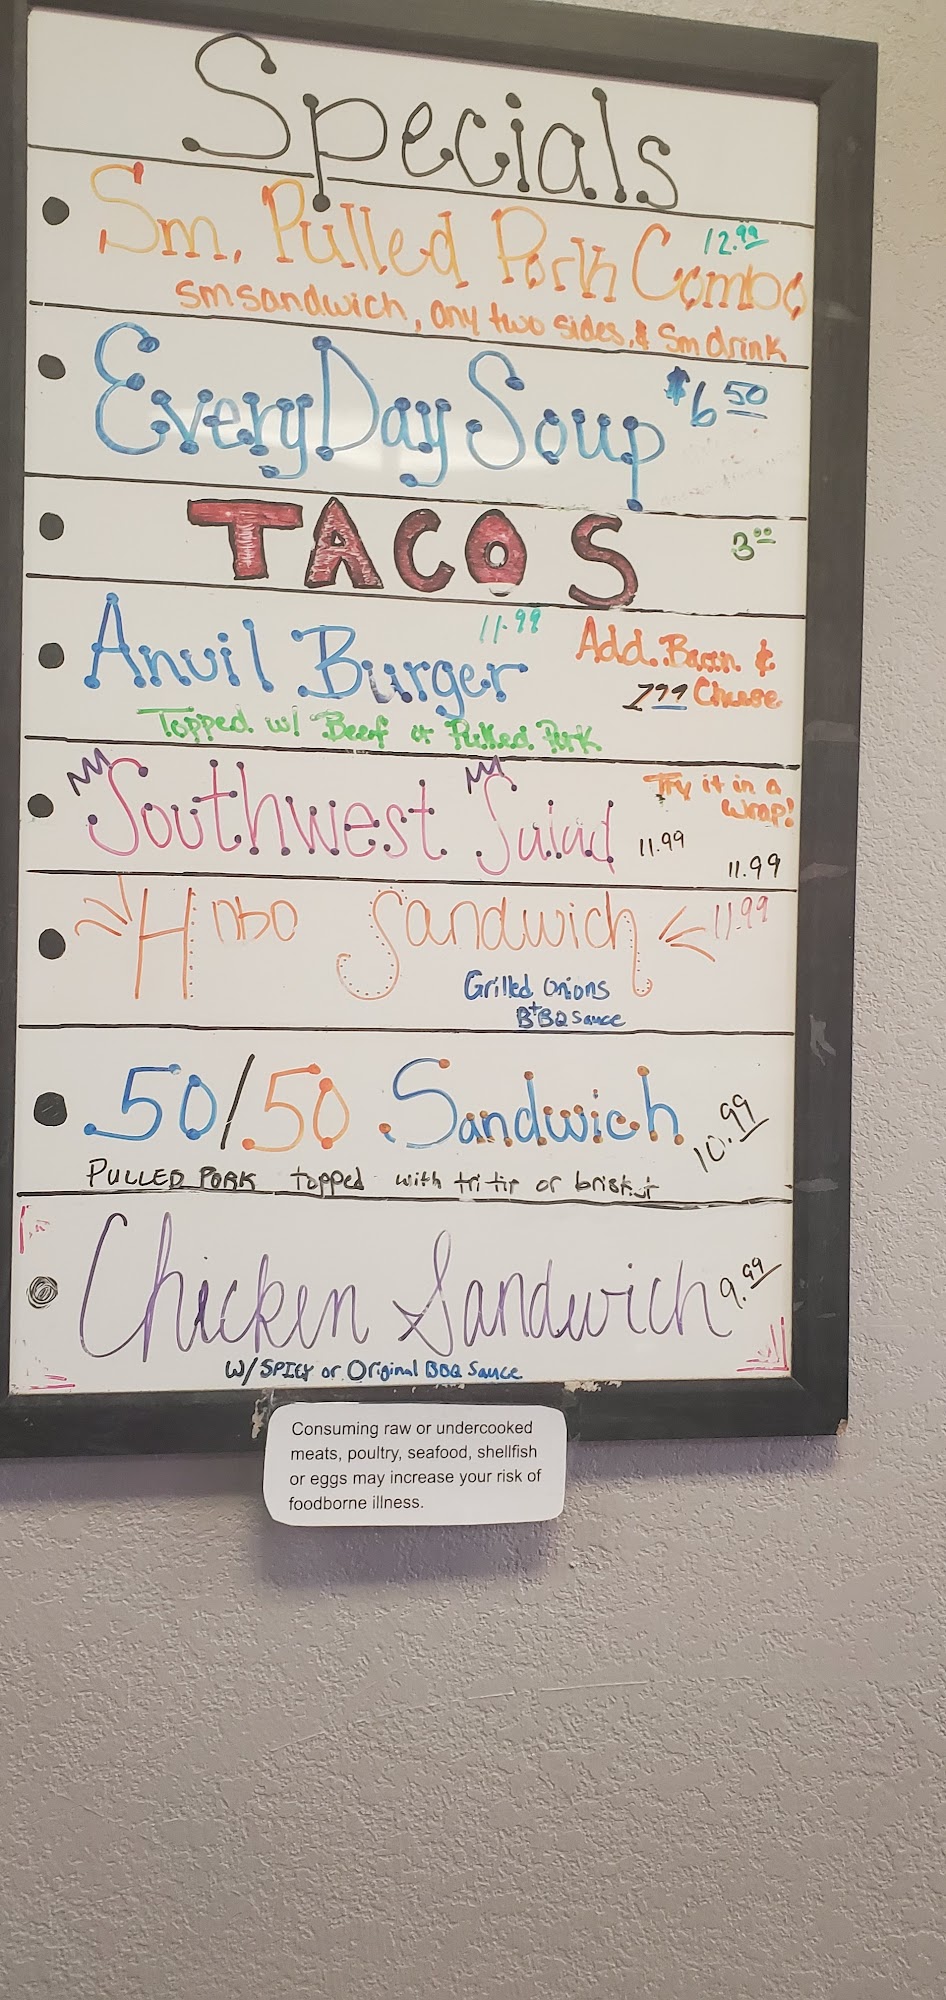 Specials
Sm. Pulled Pork Combo 12.99
sm sandwich, any two sides, & sm drink
EveryDay Soup $6 50
TACOS 3 00
Anvil Burger 11.99 Add. Bacon &
2 99 Cheese
Topped w/ Beef or Pulled Pork
Southwest Salad 11.99 Try it in a
wrap!
11.99
Hobo Sandwich 11.99
Grilled Onions
+
BBQ Sauce
50/50 Sandwich 10.99
PULLED PORK topped with tri tip or brisket
Chicken Sandwich 9.99
W/ SPICY or Original BBQ Sauce
Consuming raw or undercooked
meats, poultry, seafood, shellfish
or eggs may increase your risk of
foodborne illness.